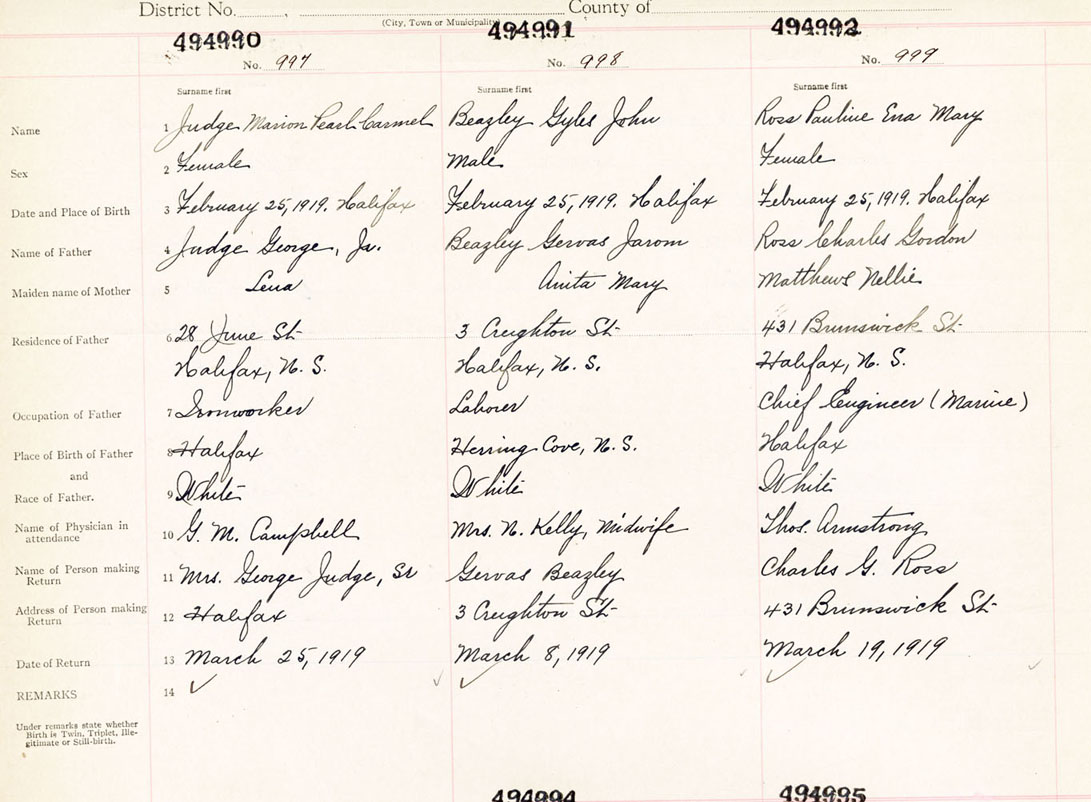 District No. County of
(City, Town or Municipality)
494990 494991 494992
No. 997 No. 998 No. 999
Surname first Surname first Surname first
Name 1 Judge Marion Pearl Carmel Beazley Gyles John Ross Pauline Ena Mary
Sex 2 Female Male Female
Date and Place of Birth 3 February 25, 1919. Halifax February 25, 1919. Halifax February 25, 1919. Halifax
Name of Father 4 Judge George, Jr. Beazley Gervas Jarom Ross Charles Gordon
Maiden name of Mother 5 Lena Anita Mary Matthews Nellie
Residence of Father 6 28 June St 3 Creighton St 431 Brunswick St
Halifax, N. S. Halifax, N. S. Halifax, N. S.
Occupation of Father 7 Ironworker Laborer Chief Engineer (Marine)
Place of Birth of Father 8 Halifax Herring Cove, N. S. Halifax
and
Race of Father. 9 White White White
Name of Physician in
attendance 10 G. M. Campbell Mrs. N. Kelly, Midwife Thos. Armstrong
Name of Person making
Return 11 Mrs. George Judge, Sr Gervas Beazley Charles G. Ross
Address of Person making
Return 12 Halifax 3 Creighton St 431 Brunswick St
Date of Return 13 March 25, 1919 March 8, 1919 March 19, 1919
REMARKS 14 ✓ ✓ ✓
Under remarks state whether
Birth is Twin, Triplet, Ille-
gitimate or Still-birth.
494994 494995